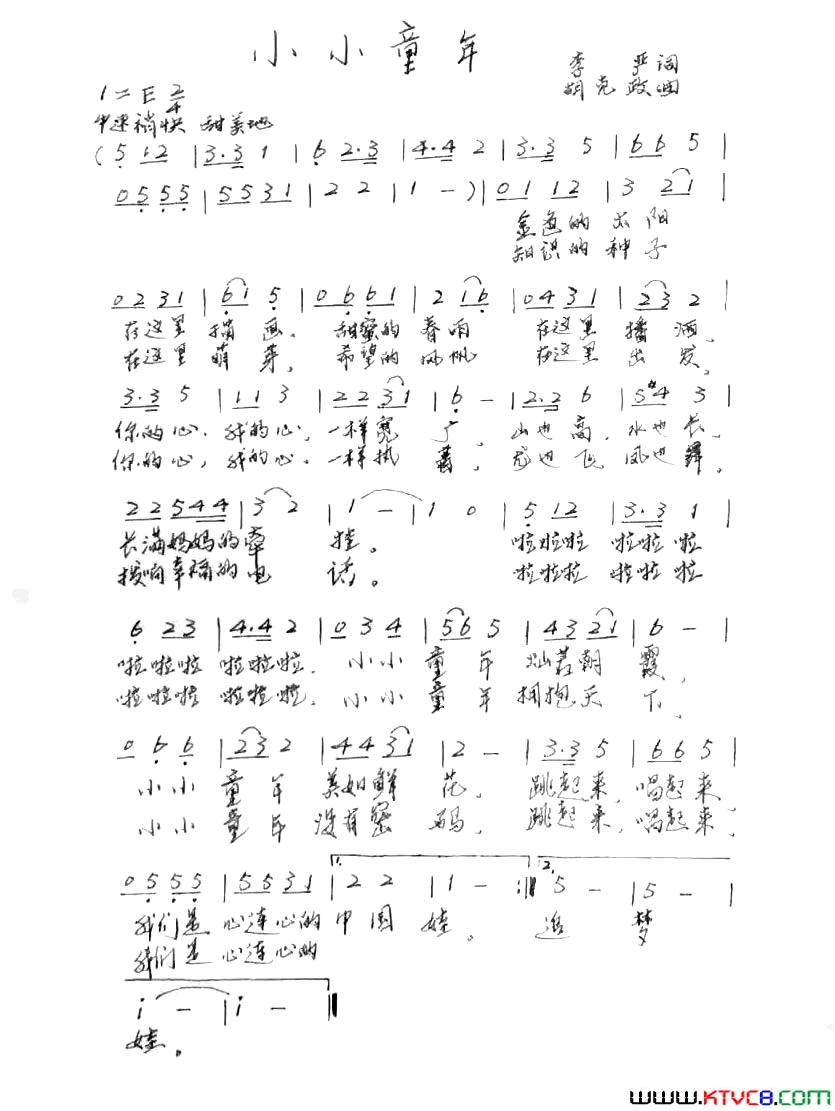 小小童年
李 严 词
1=E 2/4
胡克政曲
中速稍快 甜美地
(5 12 | 3·3 1 | 6 2·3 | 4·4 2 | 3·3 5 | 66 5 |
05 55 | 5531 | 2 2 | 1 - ) | 01 12 | 3 21 |
金色的太阳
知识的种子
02 31 | 61 5 | 06 61 | 2 16 | 04 31 | 23 2 |
在这里描画。甜蜜的春雨在这里播洒,
在这里萌芽。希望的风帆在这里出发,
3·3 5 | 11 3 | 22 31 | 6 - | 2·2 6 | 5#4 3 |
你的心,我的心,一样宽广。山也高,水也长,
你的心,我的心,一样执著。龙也飞,凤也舞,
22 544 | 3 2 | 1 - | 1 0 | 5 12 | 3·3 1 |
长满妈妈的牵挂。啦啦啦啦啦啦
拨响幸福的电话。啦啦啦啦啦啦
6 23 | 4·4 2 | 0 3 4 | 56 5 | 43 21 | 6 - |
啦啦啦啦啦啦,小小童年灿若朝霞,
啦啦啦啦啦啦,小小童年拥抱天下,
0 6 6 | 23 2 | 44 31 | 2 - | 3·3 5 | 66 5 |
小小童年美如鲜花。跳起来,唱起来,
小小童年没有密码。跳起来,唱起来,
1. 2.
05 55 | 5531 | 2 2 | 1 - :‖ 5 - | 5 - |
我们是心连心的中国娃。追梦
我们是心连心的
i - | i - ‖
娃。
www.KTVC8.com